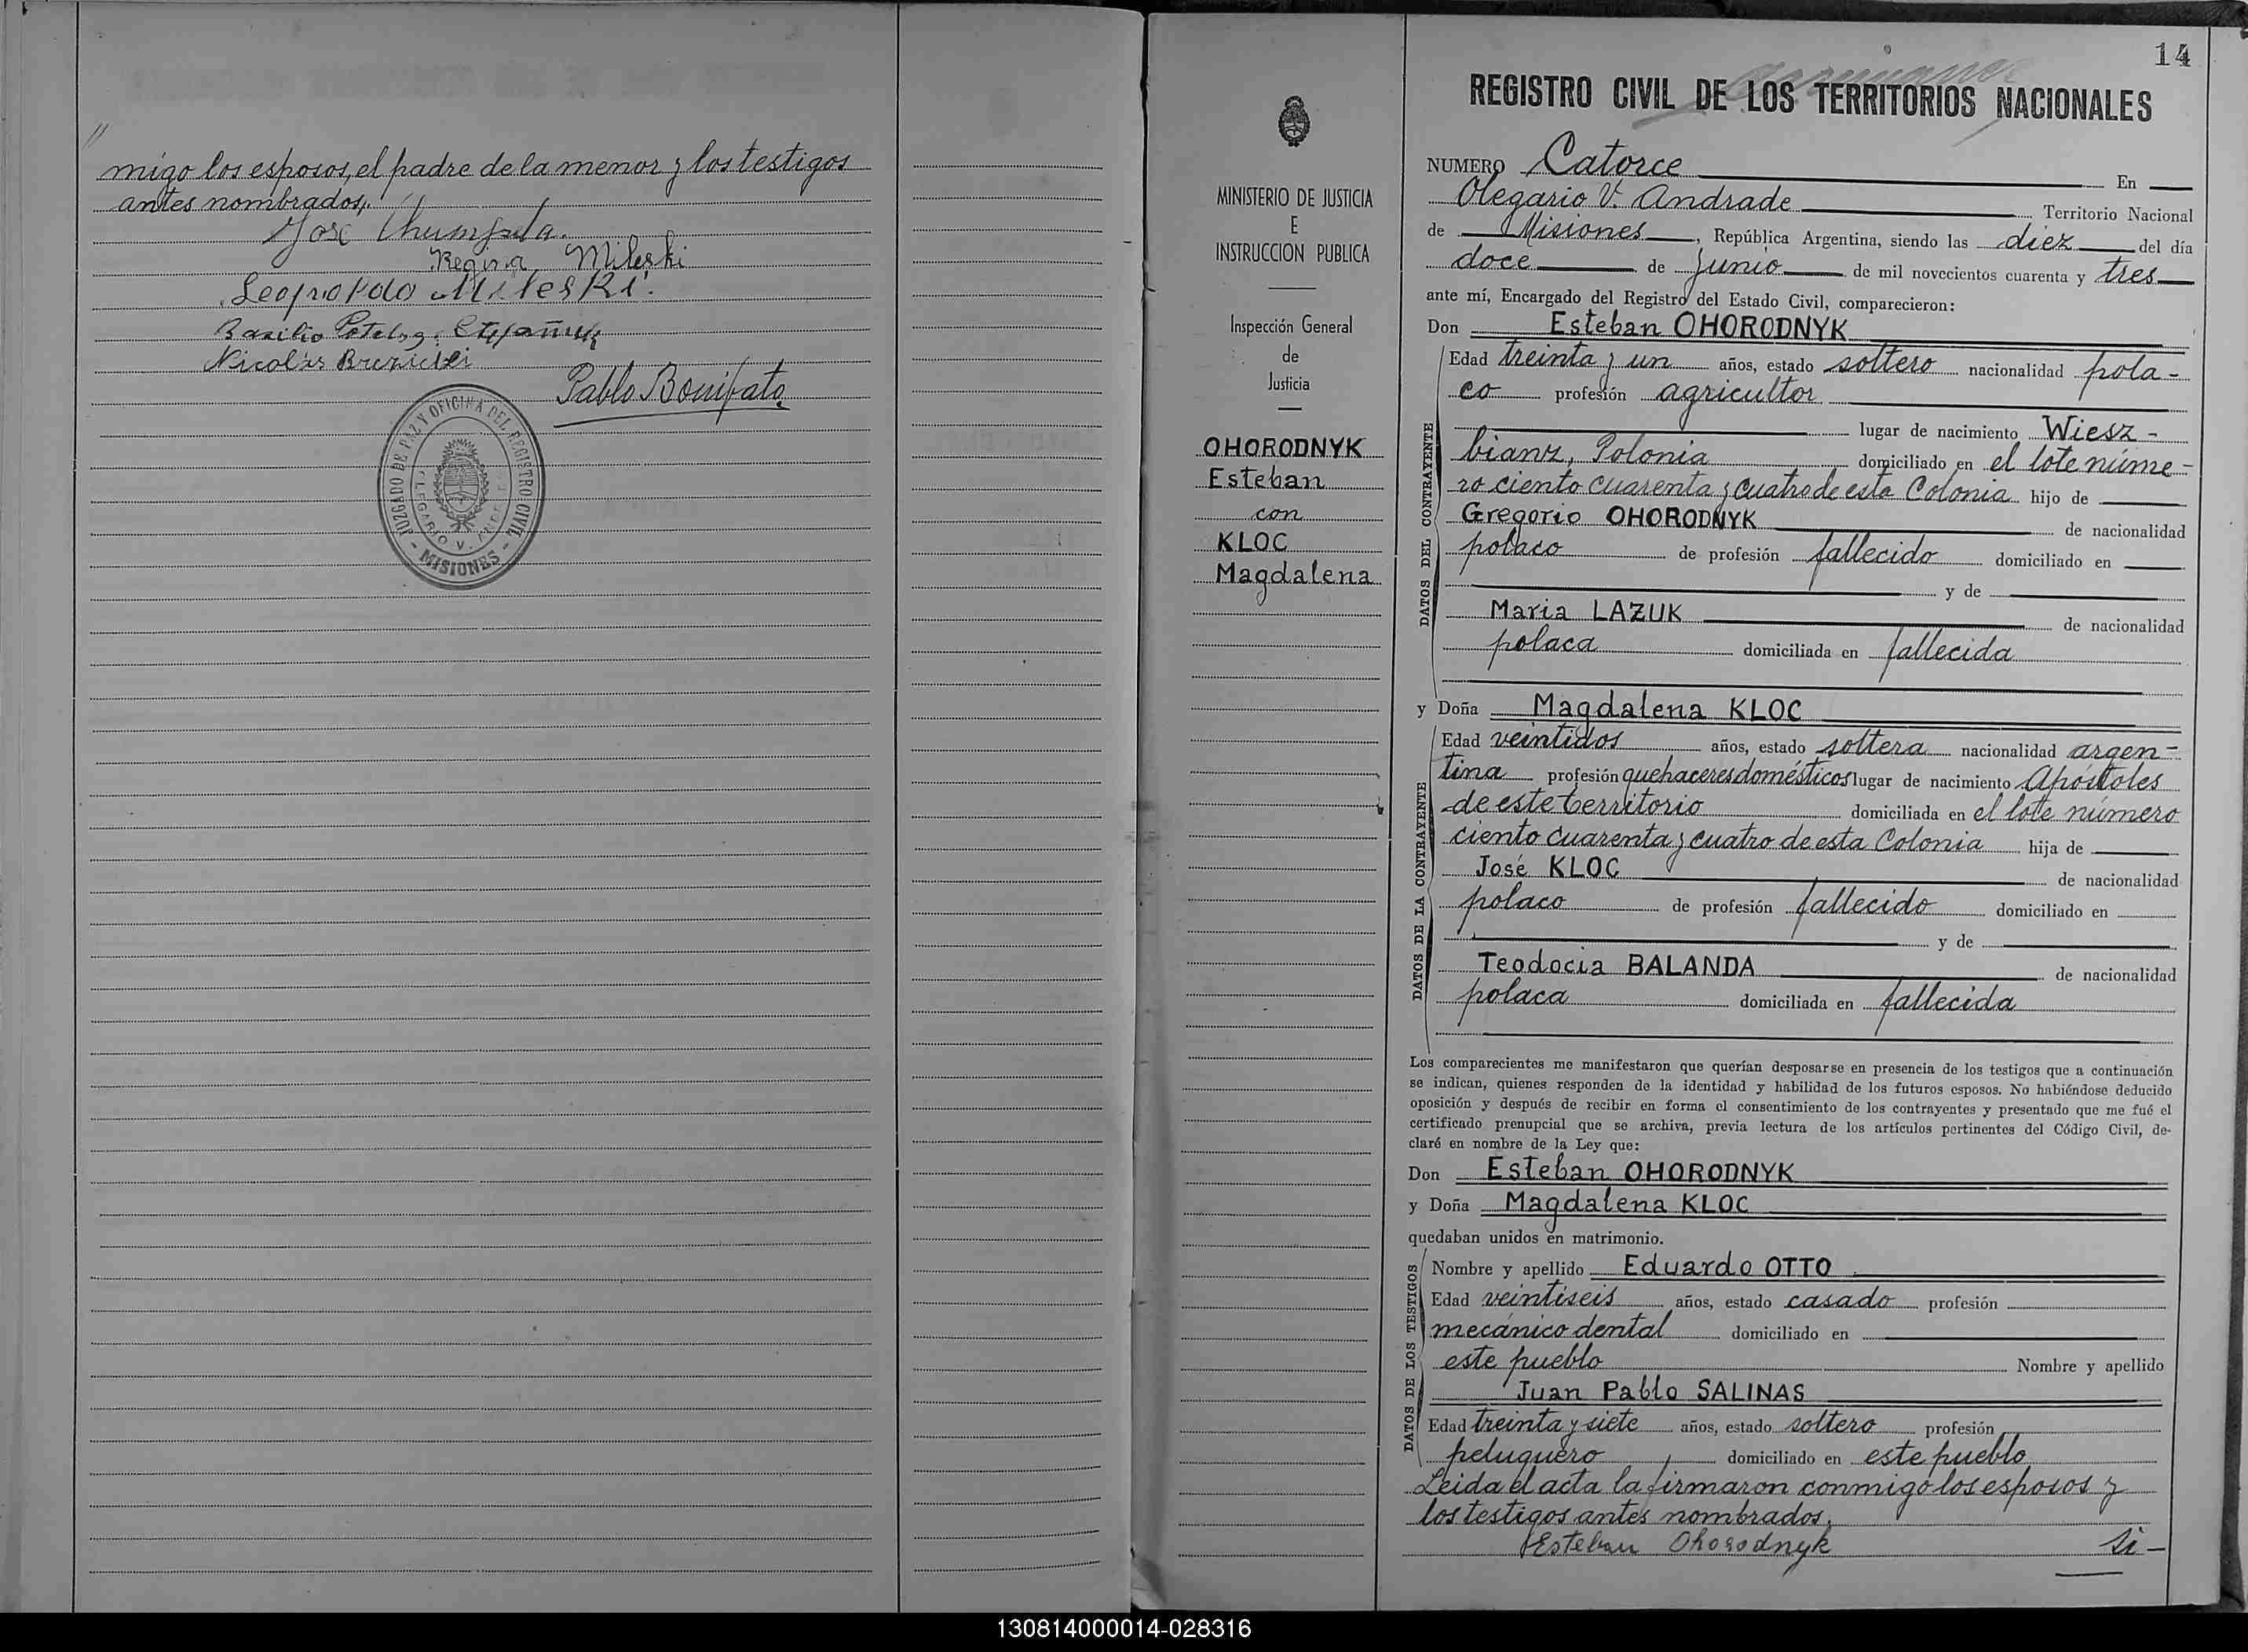 "
migo los esposos, el padre de la menor y los testigos
antes nombrados,.
José
Regina Mileski
Leopoldo Mileski.
Basilio
Nicolás
Pablo Bonifato
JUZGADO DE PAZ Y OFICINA DEL REGISTRO CIVIL
OLEGARIO V. ANDRADE
- MISIONES -
MINISTERIO DE JUSTICIA
E
INSTRUCCION PUBLICA
Inspección General
de
Justicia
OHORODNYK
Esteban
con
KLOC
Magdalena
14
REGISTRO CIVIL DE LOS TERRITORIOS NACIONALES
NUMERO Catorce En
Olegario V. Andrade Territorio Nacional
de Misiones, República Argentina, siendo las diez del día
doce de Junio de mil novecientos cuarenta y tres
ante mí, Encargado del Registro del Estado Civil, comparecieron:
Don Esteban OHORODNYK
DATOS DEL CONTRAYENTE
Edad treinta y un años, estado soltero nacionalidad pola-
co profesión agricultor
lugar de nacimiento Wiesz-
bianz, Polonia domiciliado en el lote núme-
ro ciento cuarenta y cuatro de esta Colonia hijo de
Gregorio OHORODNYK de nacionalidad
polaco de profesión fallecido domiciliado en
y de
Maria LAZUK de nacionalidad
polaca domiciliada en fallecida
y Doña Magdalena KLOC
DATOS DE LA CONTRAYENTE
Edad veintidos años, estado soltera nacionalidad argen-
tina profesión quehaceres domésticos lugar de nacimiento Apóstoles
de este territorio domiciliada en el lote número
ciento cuarenta y cuatro de esta Colonia hija de
José KLOC de nacionalidad
polaco de profesión fallecido domiciliado en
y de
Teodocia BALANDA de nacionalidad
polaca domiciliada en fallecida
Los comparecientes me manifestaron que querían desposarse en presencia de los testigos que a continuación
se indican, quienes responden de la identidad y habilidad de los futuros esposos. No habiéndose deducido
oposición y después de recibir en forma el consentimiento de los contrayentes y presentado que me fué el
certificado prenupcial que se archiva, previa lectura de los artículos pertinentes del Código Civil, de-
claré en nombre de la Ley que:
Don Esteban OHORODNYK
y Doña Magdalena KLOC
quedaban unidos en matrimonio.
DATOS DE LOS TESTIGOS
Nombre y apellido Eduardo OTTO
Edad veintiseis años, estado casado profesión
mecánico dental domiciliado en
este pueblo Nombre y apellido
Juan Pablo SALINAS
Edad treinta y siete años, estado soltero profesión
peluquero domiciliado en este pueblo
Leida el acta la firmaron conmigo los esposos y
los testigos antes nombrados.
Esteban Ohorodnyk Si-
130814000014-028316